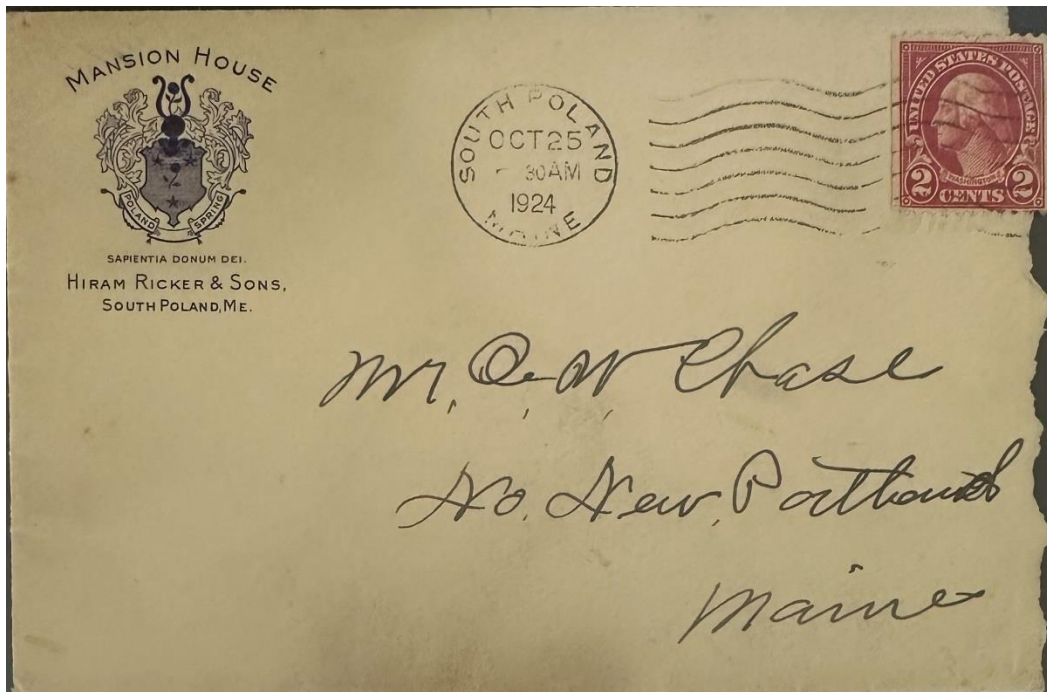 MANSION HOUSE
POLAND SPRING
SAPIENTIA DONUM DEI.
HIRAM RICKER & SONS,
SOUTH POLAND, ME.
SOUTH POLAND
OCT 25
30 AM
1924
MAINE
UNITED STATES POSTAGE
WASHINGTON
2 CENTS 2
Mr. O. W. Chase
No. New Portland
Maine